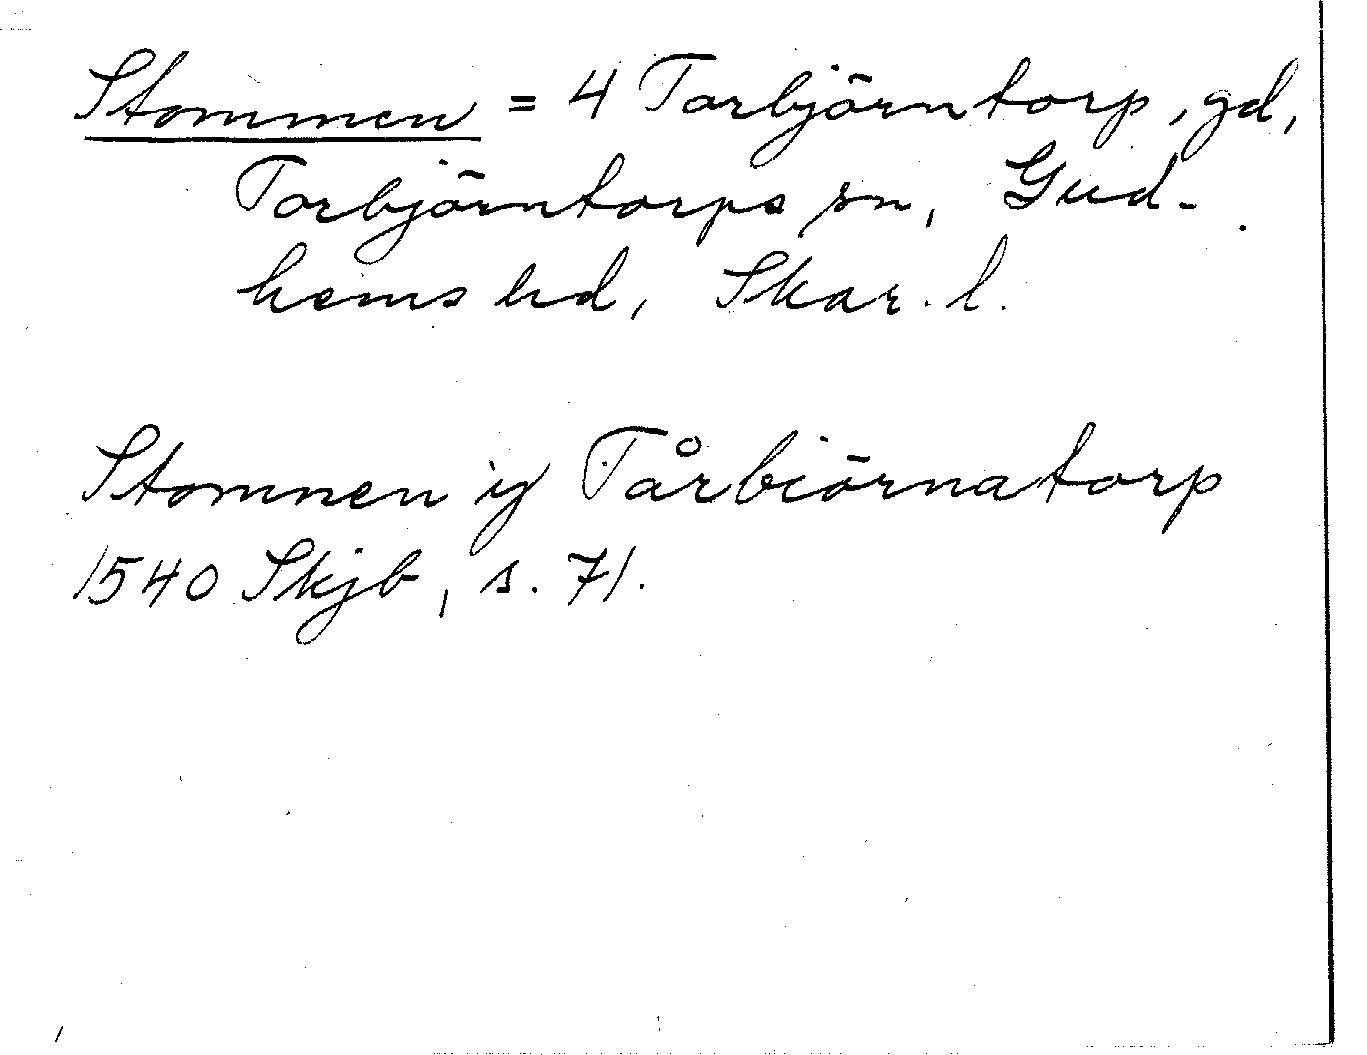 Stommen = 4 Torbjörntorp, gd,
Torbjörntorps sn, Gud-
hems hd, Skar. l.
Stomnen ij Tårbiörnatorp
1540 Skjb, s. 71.